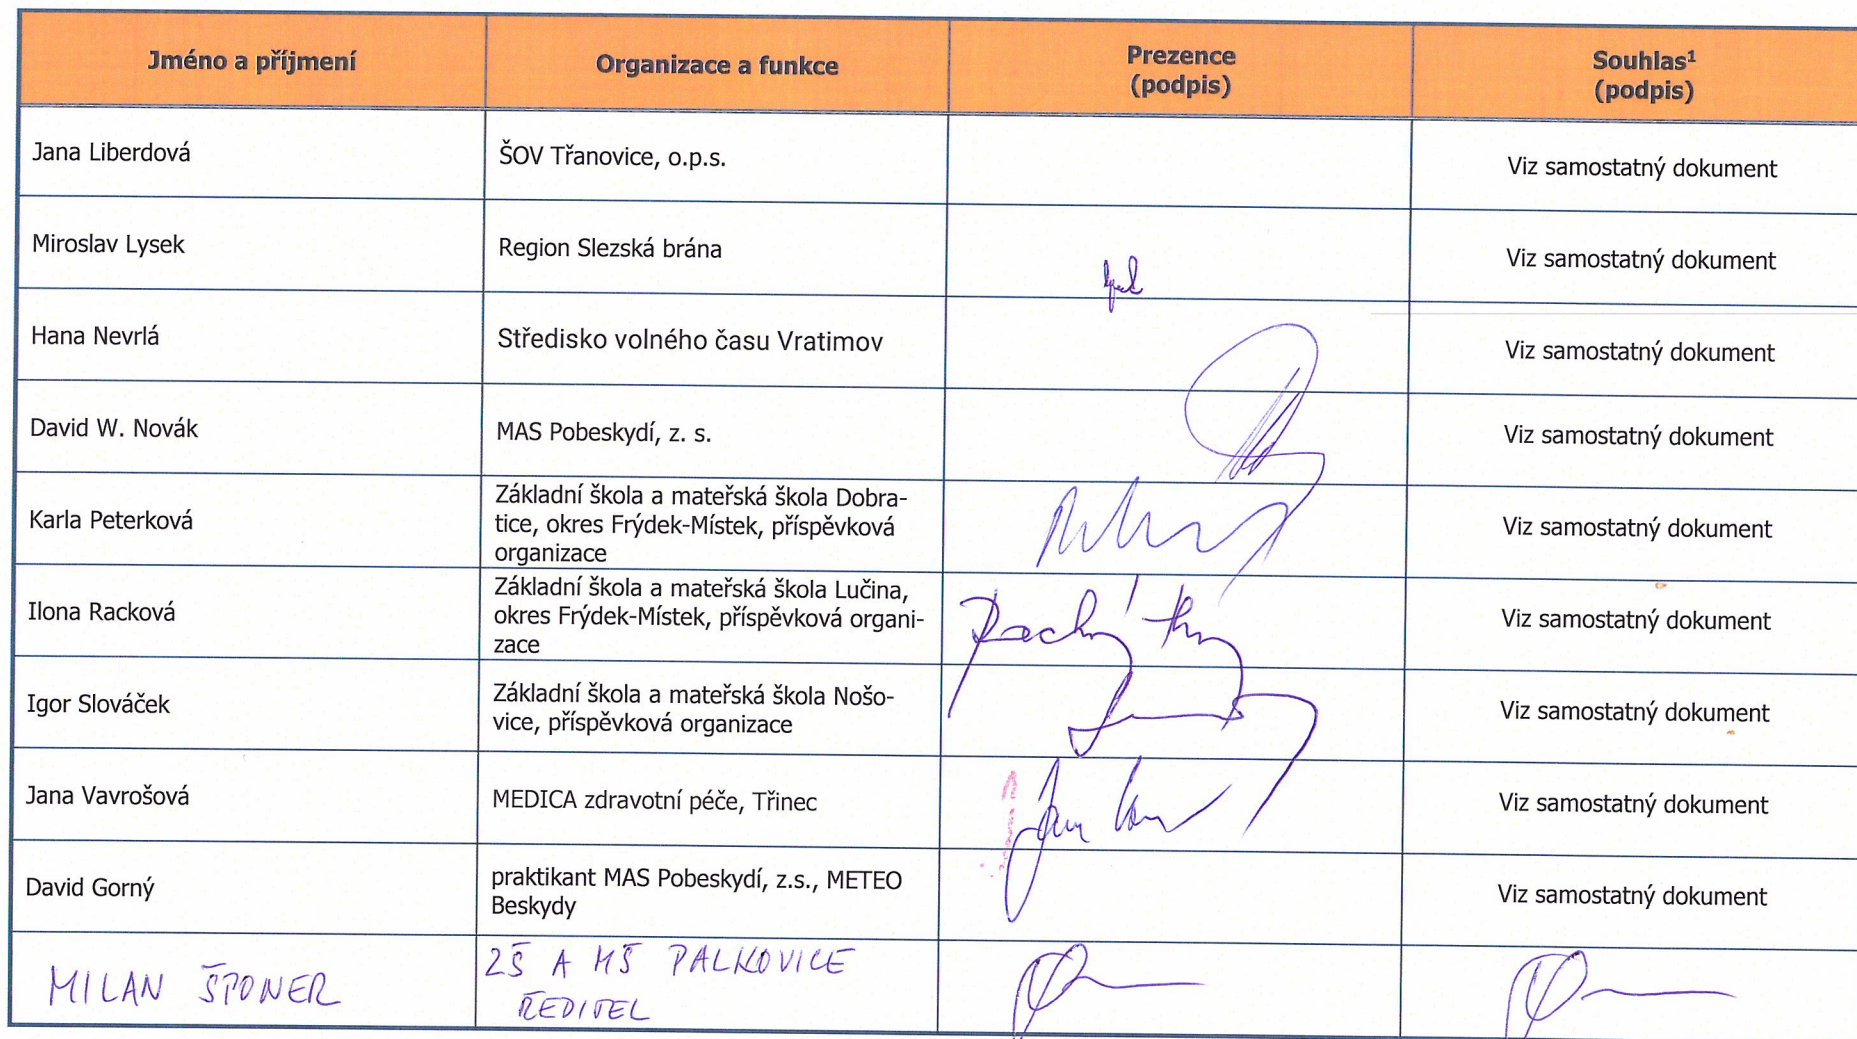 Jméno a příjmení
Organizace a funkce
Prezence
(podpis)
Souhlas¹
(podpis)
Jana Liberdová
ŠOV Třanovice, o.p.s.
Viz samostatný dokument
Miroslav Lysek
Region Slezská brána
Viz samostatný dokument
Hana Nevrlá
Středisko volného času Vratimov
Viz samostatný dokument
David W. Novák
MAS Pobeskydí, z. s.
Viz samostatný dokument
Karla Peterková
Základní škola a mateřská škola Dobra-
tice, okres Frýdek-Místek, příspěvková
organizace
Viz samostatný dokument
Ilona Racková
Základní škola a mateřská škola Lučina,
okres Frýdek-Místek, příspěvková organi-
zace
Viz samostatný dokument
Igor Slováček
Základní škola a mateřská škola Nošo-
vice, příspěvková organizace
Viz samostatný dokument
Jana Vavrošová
MEDICA zdravotní péče, Třinec
Viz samostatný dokument
David Gorný
praktikant MAS Pobeskydí, z.s., METEO
Beskydy
Viz samostatný dokument
MILAN ŠPONER
ZŠ A MŠ PALKOVICE
ŘEDITEL